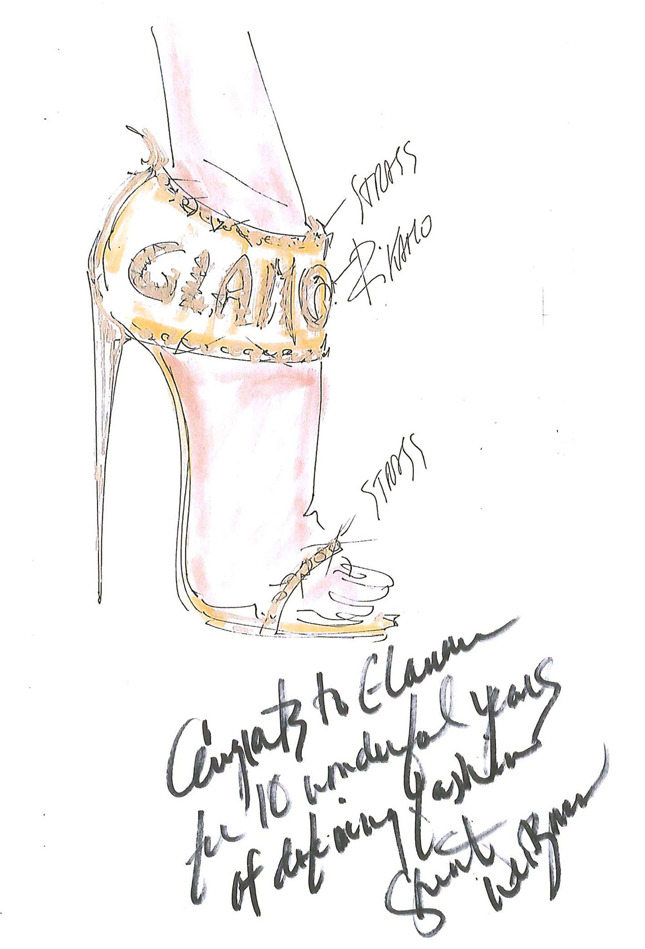 STRASS
GLAMO
RiKAMO
STRASS
Congrats to Glamour
for 10 wonderful years
of defining fashion
Stuart Weitzman